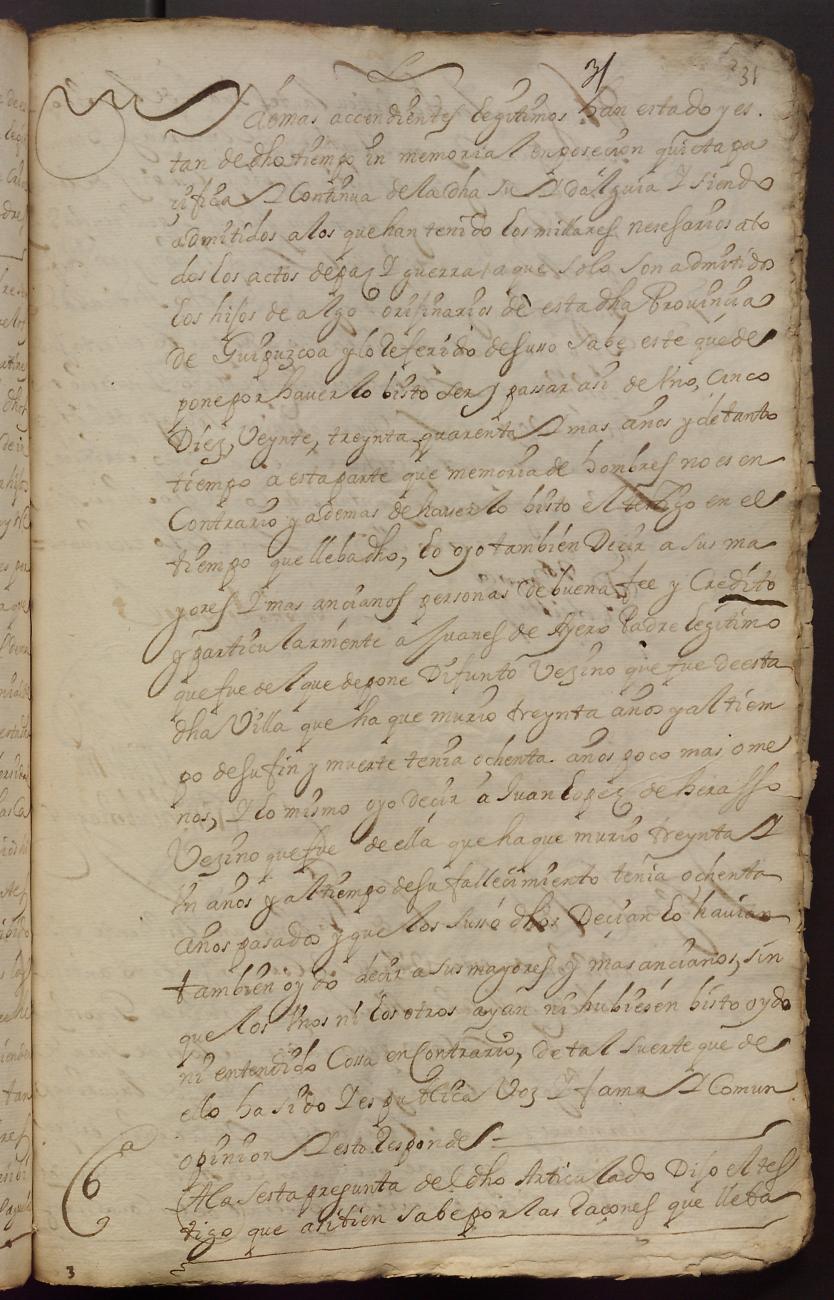 31 31
demas accendientes legitimos han estado y es.
tan de dho tiempo in memorial en posecion quieta pa
cifica y Continua de la dha su ydalguia y siendo
admitidos a los que han tenido los millares nesesarios ato
dos los actos de paz y guerra, a que solo son admitido
los hijos de algo orijinarios de esta dha Provincia
de Guipuzcoa y lo Referido desusso sabe este que de
pone por hauerlo bisto ser y passar asi de Uno, Cinco
Diez, Veynte, treynta quarenta y mas años y de tanto
tiempo a esta parte que memoria de hombres no es en
Contrario y ademas de hauerlo bisto el testigo en el
tiempo que lleba dho, lo oyo tambien Decir a sus ma
yores y mas ancianos personas de buena fee y Credito
y particularmente a Juanes de Padre legitimo
que fue del que depone Difunto Vezino que fue de esta
dha Villa que ha que murio treynta años y al tiem
po de su fin y muerte tenia ochenta años poco mas o me
nos, y lo mismo oyo decir a Juan Lopez de herasso
Vezino que fue de ella que ha que murio treynta y
Un años y al tiempo de su fallecimiento tenia ochenta
años pasados y que los susso dhos Decian lo hauian
tambien oydo decir a sus mayores y mas ancianos, sin
que los Unos ni los otros ayan ni hubiesen bisto oydo
ni entendido Cossa en Contrario, de tal suerte que de
ello ha sido y es publica Voz y fama y Comun
opinion y esto Responde
6a
A la sesta pregunta del dho Articulado Dijo el tes
tigo que asi tien sabe por las Raçones que lleba
3